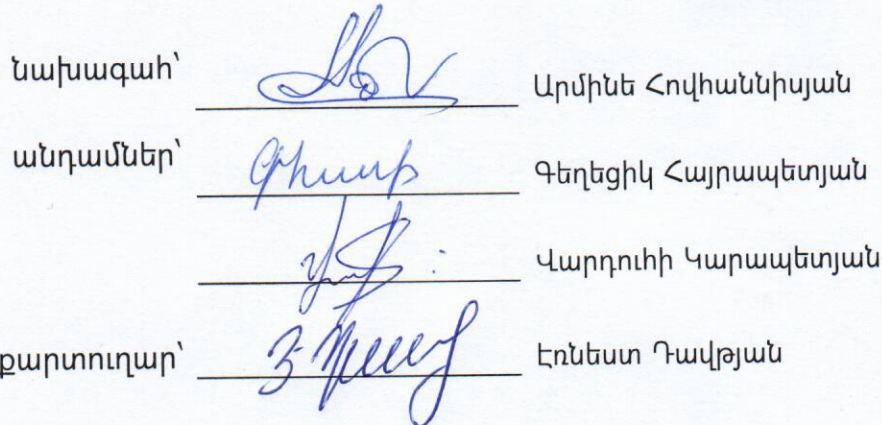 նախագահ՝ Արմինե Հովհաննիսյան
անդամներ՝ Գեղեցիկ Հայրապետյան
Վարդուհի Կարապետյան
քարտուղար՝ Էռնեստ Դավթյան